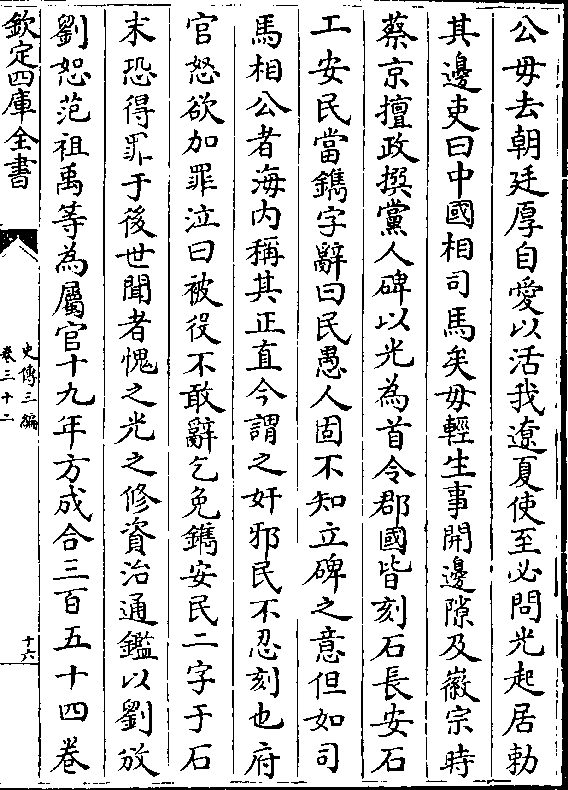 公毋去朝廷厚自愛以活我遼夏使至必問光起居勅
其邊吏曰中國相司馬矣毋輕生事開邊隙及徽宗時
蔡京擅政撰黨人碑以光為首令郡國皆刻石長安石
工安民當鐫字辭曰民愚人固不知立碑之意但如司
馬相公者海内稱其正直今謂之奸邪民不忍刻也府
官怒欲加罪泣曰被役不敢辭乞免鐫安民二字于石
末恐得罪于後世聞者愧之光之修資治通鑑以劉攽
劉恕范祖禹等為屬官十九年方成合三百五十四卷
欽定四庫全書
史傳三編
卷三十二
十六